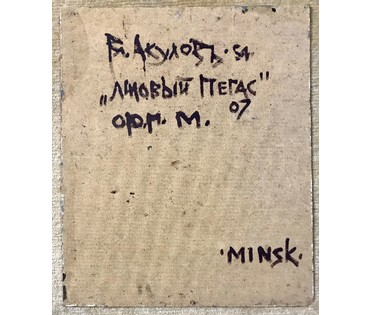 В. Акуловъ. 51.
„Лиловый Пегас"
орг. м. 07
.MINSK.